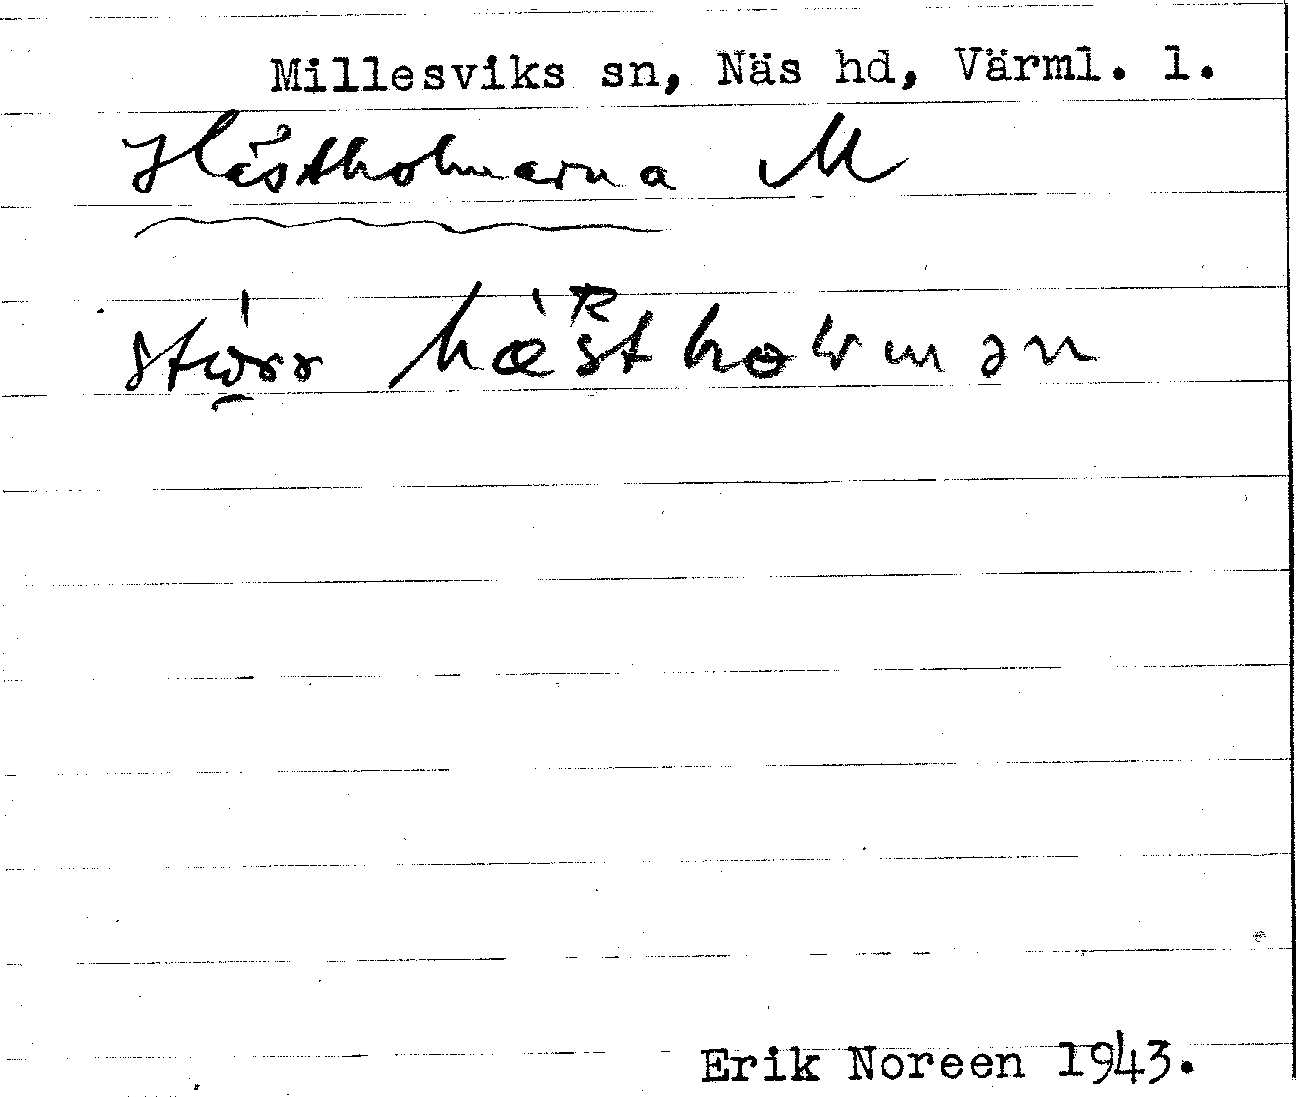 Millesviks sn, Näs hd, Värml. l.
Hästholmarna M
hæ̀stholmən
Erik Noreen 1943.